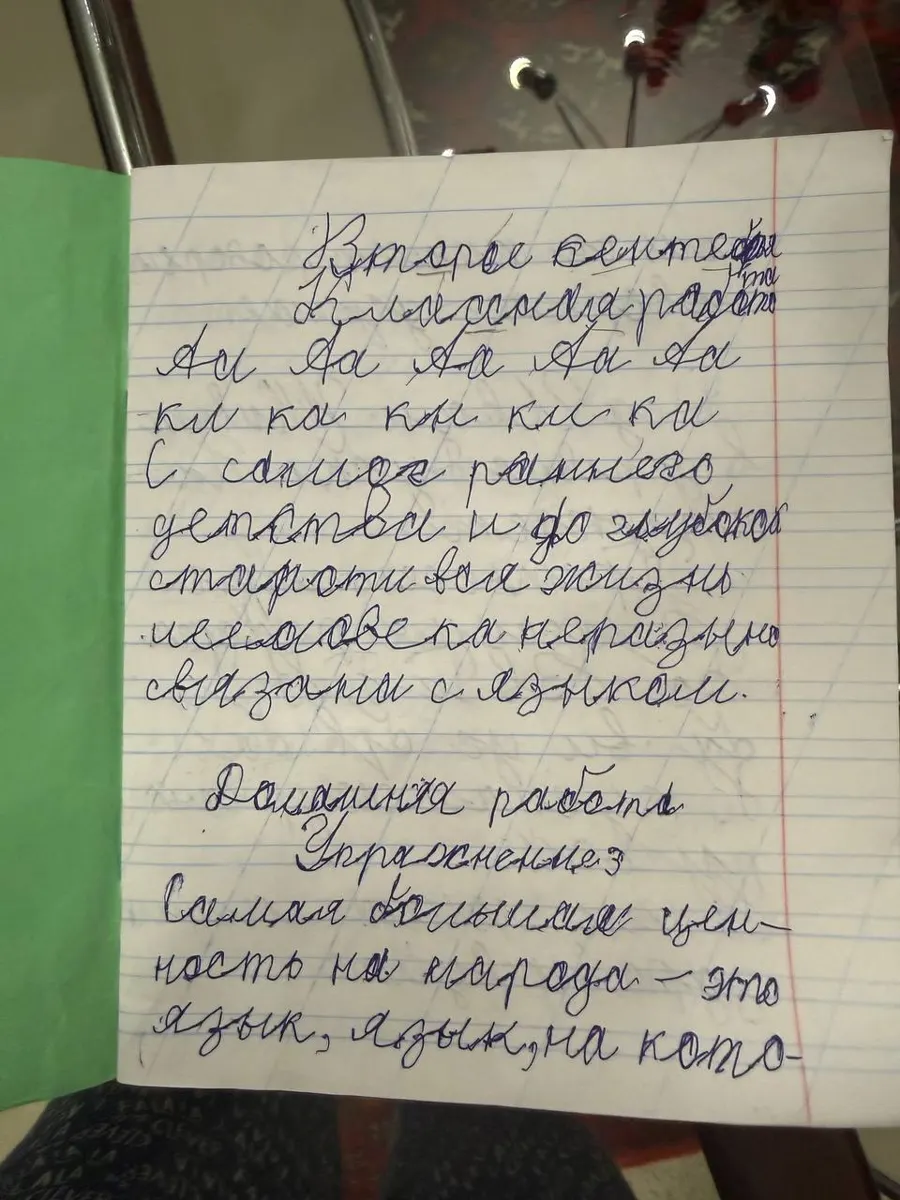 Второе сентября
Классная работа
Аа Аа Аа Аа Аа
кл ка кн кл ка
С самого раннего
детства и до глубокой
старости вся жизнь
человека неразывно
связана с языком.
Домашняя работа
Упражнение3
Самая большая цен-
ность на народа – это
язык, язык, на кото-